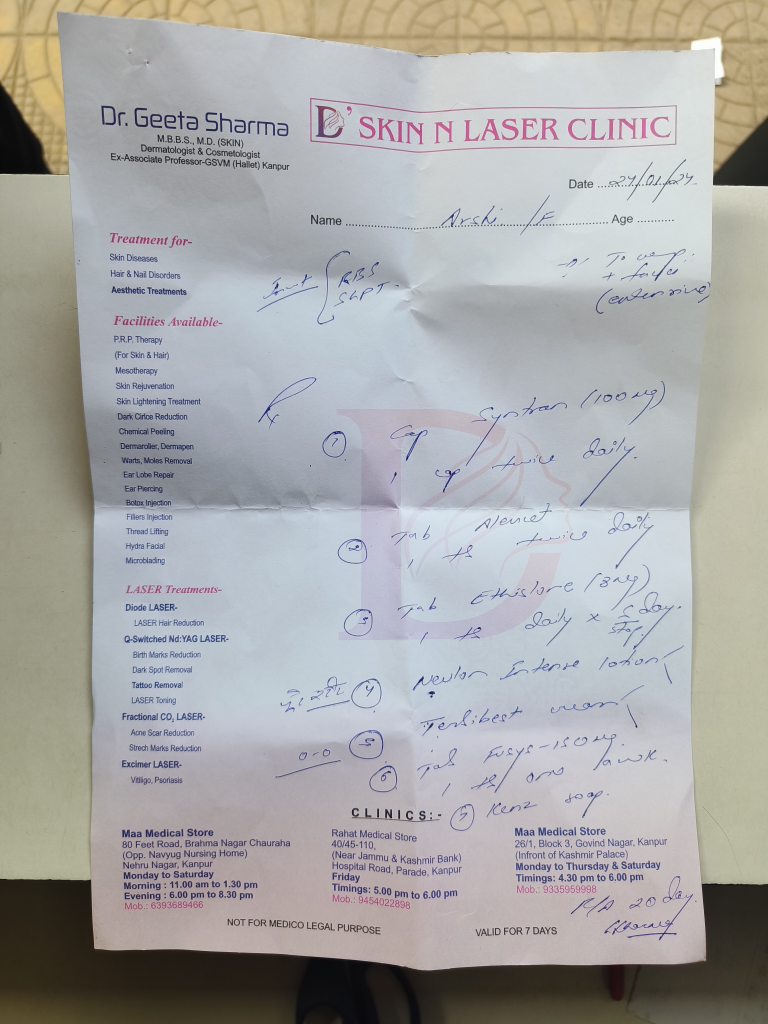 Dr. Geeta Sharma
M.B.B.S., M.D. (SKIN)
Dermatologist & Cosmetologist
Ex-Associate Professor-GSVM (Hallet) Kanpur
D' SKIN N LASER CLINIC
Date ...24/01/24
Name ........ Arshi /F ........ Age ...........
Treatment for-
Skin Diseases
Hair & Nail Disorders
Aesthetic Treatments
RBS
SGPT
Facilities Available-
P.R.P. Therapy
(For Skin & Hair)
Mesotherapy
Skin Rejuvenation
Skin Lightening Treatment
Dark Cirlce Reduction
Chemical Peeling
Dermaroller, Dermapen
Warts, Moles Removal
Ear Lobe Repair
Ear Piercing
Botox Injection
Fillers Injection
Thread Lifting
Hydra Facial
Microblading
LASER Treatments-
Diode LASER-
LASER Hair Reduction
Q-Switched Nd:YAG LASER-
Birth Marks Reduction
Dark Spot Removal
Tattoo Removal
LASER Toning
Fractional CO₂ LASER-
Acne Scar Reduction
Strech Marks Reduction
Excimer LASER-
Vitiligo, Psoriasis
Rx
1 Cap Syntran (100mg)
1 cap twice daily.
2 Tab
1 tb twice daily
3 Tab
1 tb daily x 5 day.
stop
4 Intense lotion
5 Terbibest cream
6 Tab Fusys-150mg.
1 tb
7 Kenz soap.
CLINICS:-
Maa Medical Store
80 Feet Road, Brahma Nagar Chauraha
(Opp. Navyug Nursing Home)
Nehru Nagar, Kanpur
Monday to Saturday
Morning : 11.00 am to 1.30 pm
Evening : 6.00 pm to 8.30 pm
Mob.: 6393689466
Rahat Medical Store
40/45-110,
(Near Jammu & Kashmir Bank)
Hospital Road, Parade, Kanpur
Friday
Timings: 5.00 pm to 6.00 pm
Mob.: 9454022898
Maa Medical Store
26/1, Block 3, Govind Nagar, Kanpur
(Infront of Kashmir Palace)
Monday to Thursday & Saturday
Timings: 4.30 pm to 6.00 pm
Mob.: 9335959998
20 day.
NOT FOR MEDICO LEGAL PURPOSE
VALID FOR 7 DAYS